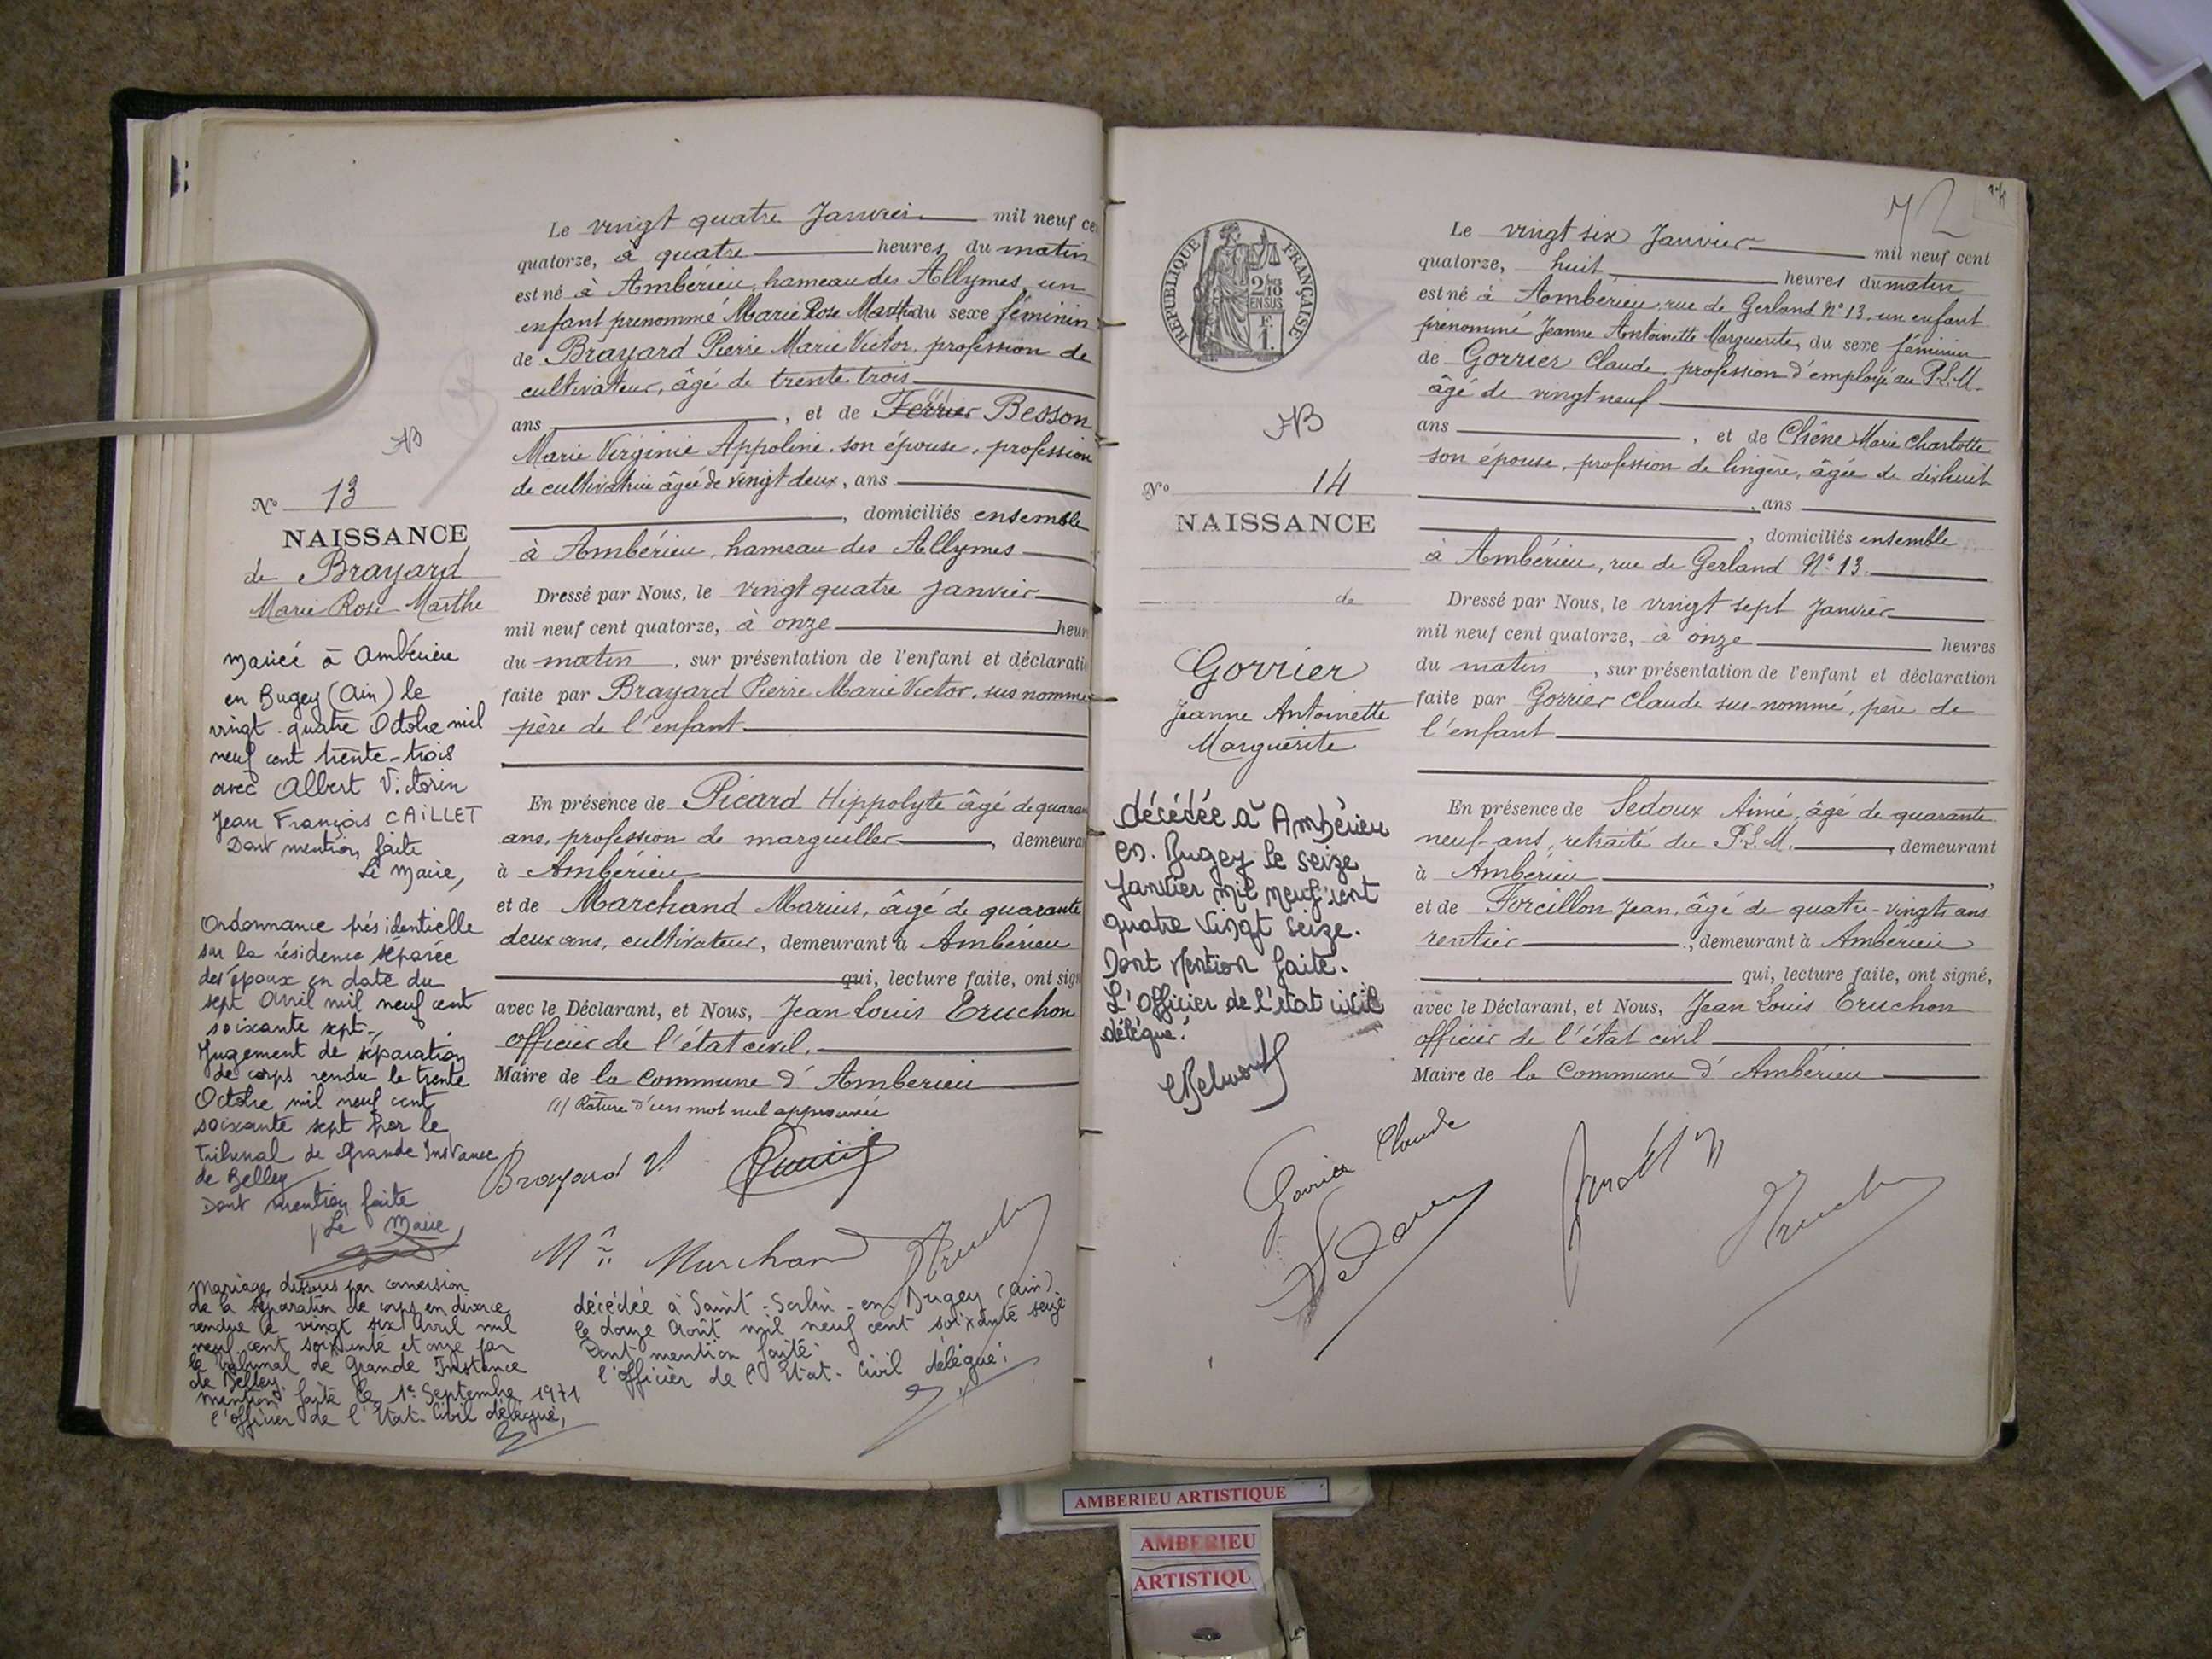 Le vingt quatre Janvier mil neuf ce
quatorze, à quatre heures, du matin
est né à Ambérieu, hameau des Allymes, un
enfant prénommé Marie Rose Marthe du sexe féminin
de Brayard Pierre Marie Victor, profession de
cultivateur, âgé de trente-trois
ans , et de Ferrier Besson
Marie Virginie Appoline, son épouse, profession
de cultivatrice âgée de vingt deux, ans
, domiciliés ensemble
à Ambérieu, hameau des Allymes
Dressé par Nous, le vingt quatre Janvier
mil neuf cent quatorze, à onze heur
du matin , sur présentation de l'enfant et déclarati
faite par Brayard Pierre Marie Victor, sus nommé
père de l'enfant
En présence de Picard Hippolyte âgé de quaran
ans, profession de marguiller , demeura
à Ambérieu
et de Marchand Marius, âgé de quarante
deux ans, cultivateur, demeurant à Ambérieu
qui, lecture faite, ont sign
avec le Déclarant, et Nous, Jean Louis Eruchon
officier de l'état civil.
Maire de la Commune d'Ambérieu
(1) Rature d'un mot nul approuvée
Brayard V.
Marchand
AB
N° 13
NAISSANCE
de Brayard
Marie Rose Marthe
Mariée à Ambérieu
en Bugey (Ain) le
vingt quatre Octobre mil
neuf cent trente-trois
avec Albert Victorin
Jean François CAILLET
Dont mention faite
Le Maire,
Ordonnance présidentielle
sur la résidence séparée
des époux en date du
sept Avril mil neuf cent
soixante sept.
Jugement de séparation
de corps rendu le trente
Octobre mil neuf cent
soixante sept par le
Tribunal de Grande Instance
de Belley
Dont mention faite
Le Maire,
Mariage dissous par conversion
de la séparation de corps en divorce
rendue le vingt six Avril mil
neuf cent soixante et onze par
le Tribunal de Grande Instance
de Belley.
Mention faite le 1er Septembre 1971
l'officier de l'Etat-Civil délégué,
décédée à Saint-Sorlin-en-Bugey (Ain)
le douze Août mil neuf cent soixante seize
Dont mention faite.
l'officier de l'Etat-Civil délégué,
72
RÉPUBLIQUE FRANÇAISE
2/10
EN SUS
F.
1.
AB
N° 14
NAISSANCE
de
Gorrier
Jeanne Antoinette
Marguerite
décédée à Ambérieu
en Bugey le seize
janvier mil neuf cent
quatre vingt seize.
Dont mention faite.
L'Officier de l'état civil
délégué.
Le vingt six Janvier mil neuf cent
quatorze, huit heures du matin
est né à Ambérieu, rue de Gerland N° 13, un enfant
prénommé Jeanne Antoinette Marguerite, du sexe féminin
de Gorrier Claude, profession d'employé au P.L.M.
âgé de vingt neuf
ans , et de Chêne Marie Charlotte
son épouse, profession de lingère, âgée de dixhuit
, ans
, domiciliés ensemble
à Ambérieu, rue de Gerland N° 13.
Dressé par Nous, le vingt sept Janvier
mil neuf cent quatorze, à onze heures
du matin , sur présentation de l'enfant et déclaration
faite par Gorrier Claude sus-nommé, père de
l'enfant
En présence de Sedoux Aimé, âgé de quarante
neuf-ans, retraité du P.L.M. , demeurant
à Ambérieu ,
et de Forcillon Jean, âgé de quatre-vingts ans
rentier , demeurant à Ambérieu
qui, lecture faite, ont signé,
avec le Déclarant, et Nous, Jean Louis Eruchon
officier de l'état civil
Maire de la Commune d'Ambérieu
Gorrier Claude
AMBERIEU ARTISTIQUE
AMBERIEU
ARTISTIQU